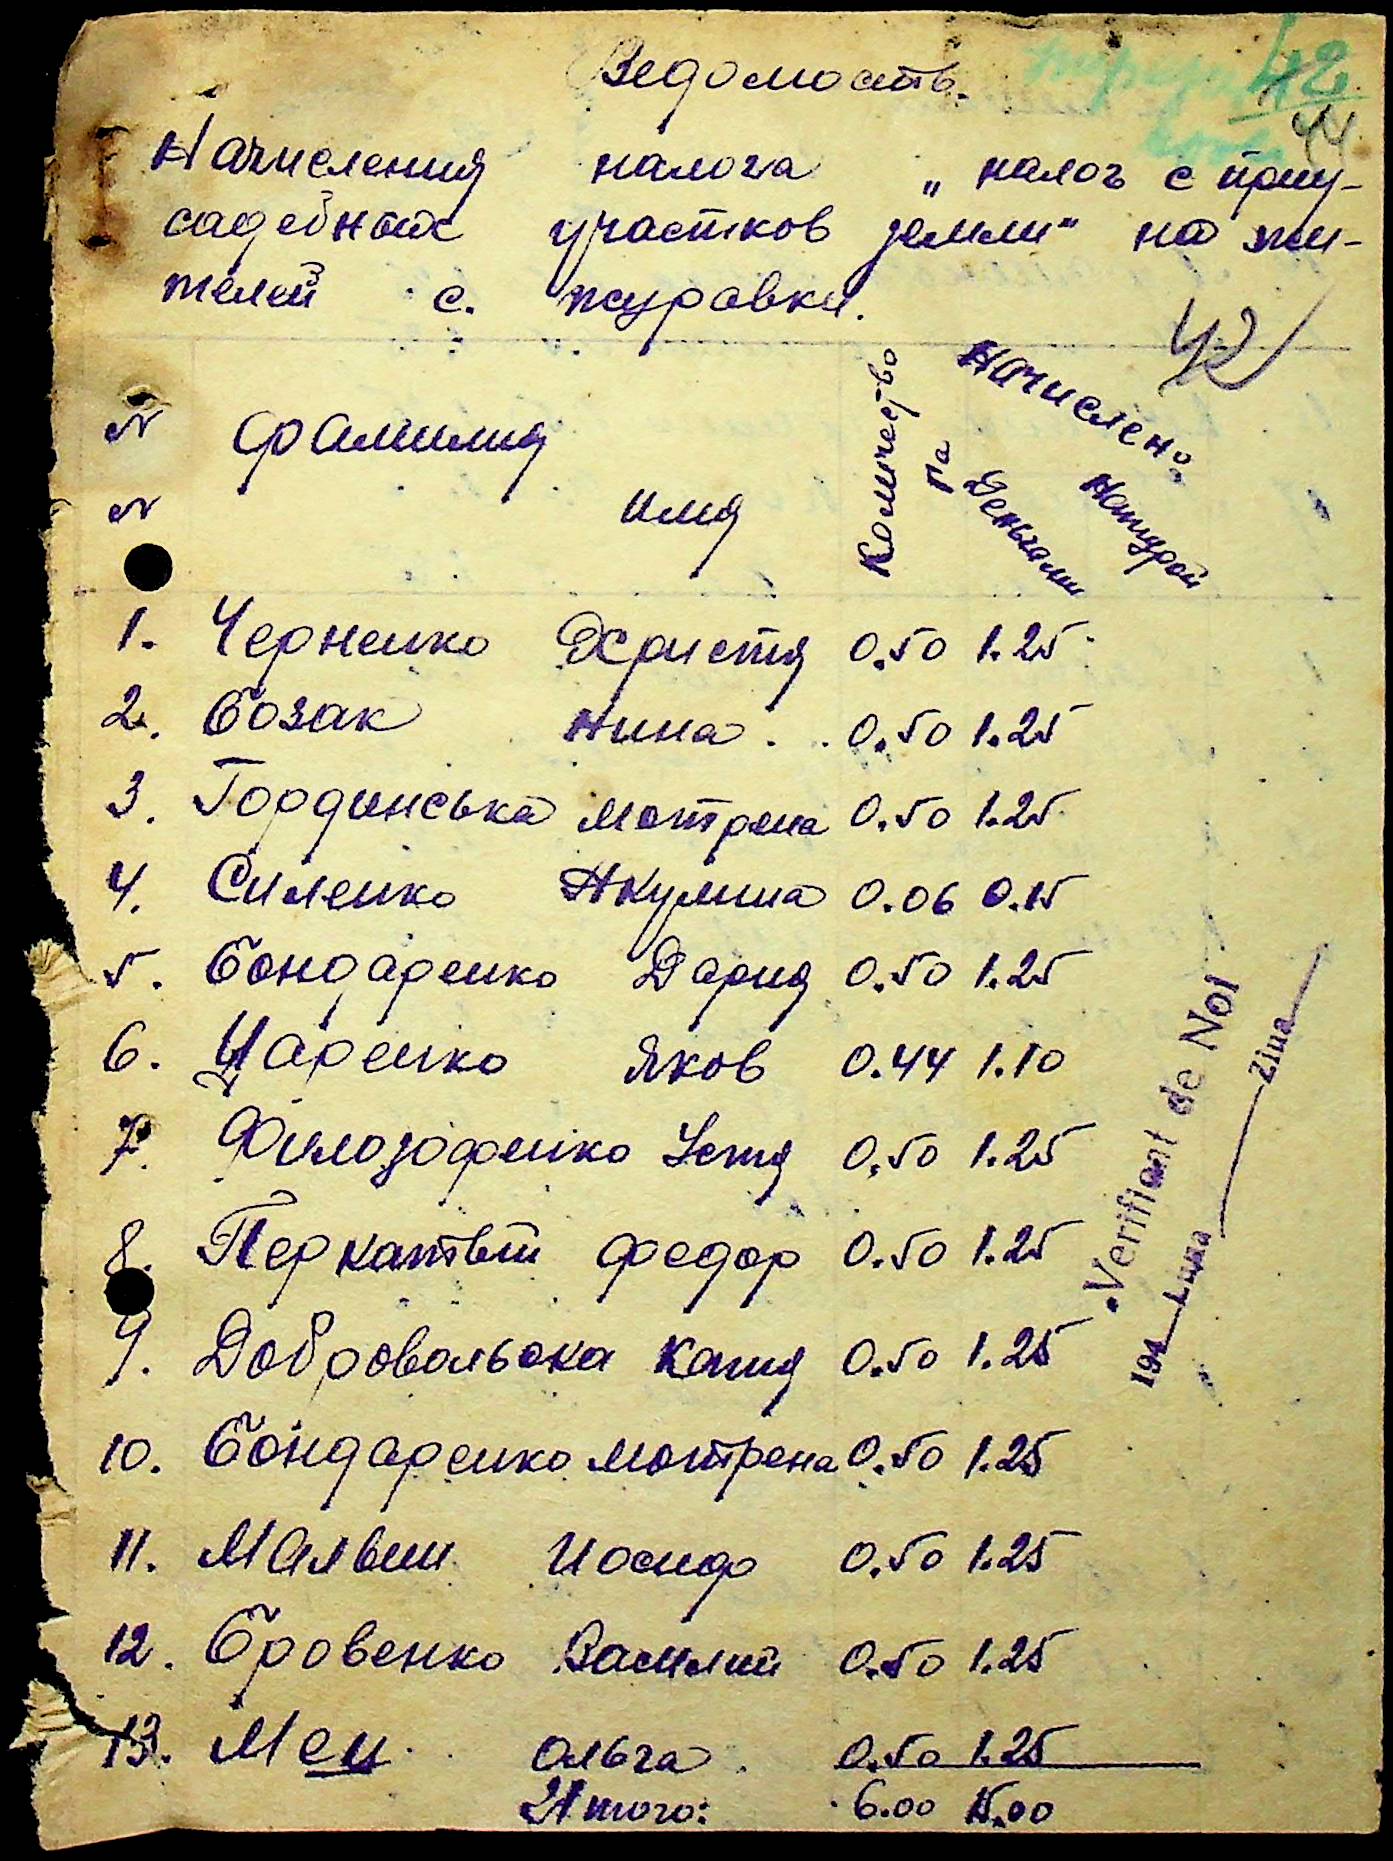 Ведомость.
42
44
Начисления налога „налог с приу-
садебных участков земли" на жи-
телей с. журавки.
42
N
N
фамилия
имя
Количество
га
Начислено:
Деньгами
Натурой
1. Черненко Христя 0.50 1.25
2. Бозак Нина 0.50 1.25
3. Гординська Мотрена 0.50 1.25
4. Силенко Акулина 0.06 0.15
5. Бондаренко Дария 0.50 1.25
6. Царенко Яков 0.44 1.10
7. Филозофенко Устя 0.50 1.25
8. Перкатый Федор 0.50 1.25
9. Добровольска Катя 0.50 1.25
10. Бондаренко Мотрена 0.50 1.25
11. Малвин Иосиф 0.50 1.25
12. Бровенко Василий 0.50 1.25
13. Мец Ольга 0.50 1.25
Итого: 6.00 15.00
Verificat de Noi
194 Luna Ziua